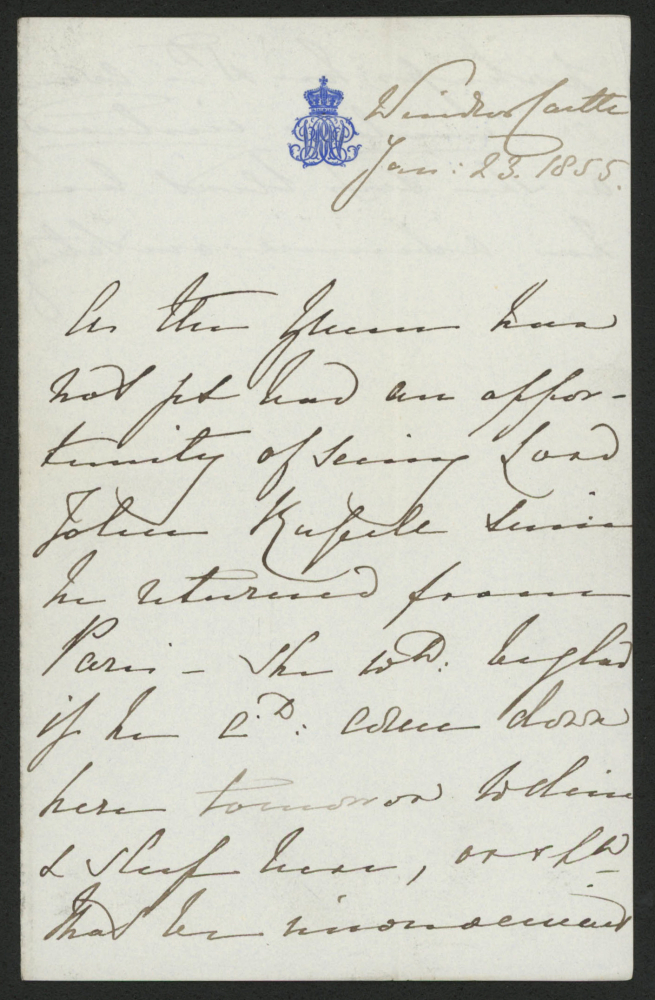 Windsor Castle
Jan: 23. 1855.
As the Queen has
not yet had an oppor-
tunity of seeing Lord
John Russell since
he returned from
Paris – she wd: be glad
if he cd: come down
here tomorrow to dine
& sleep here, or shd
that be inconvenient